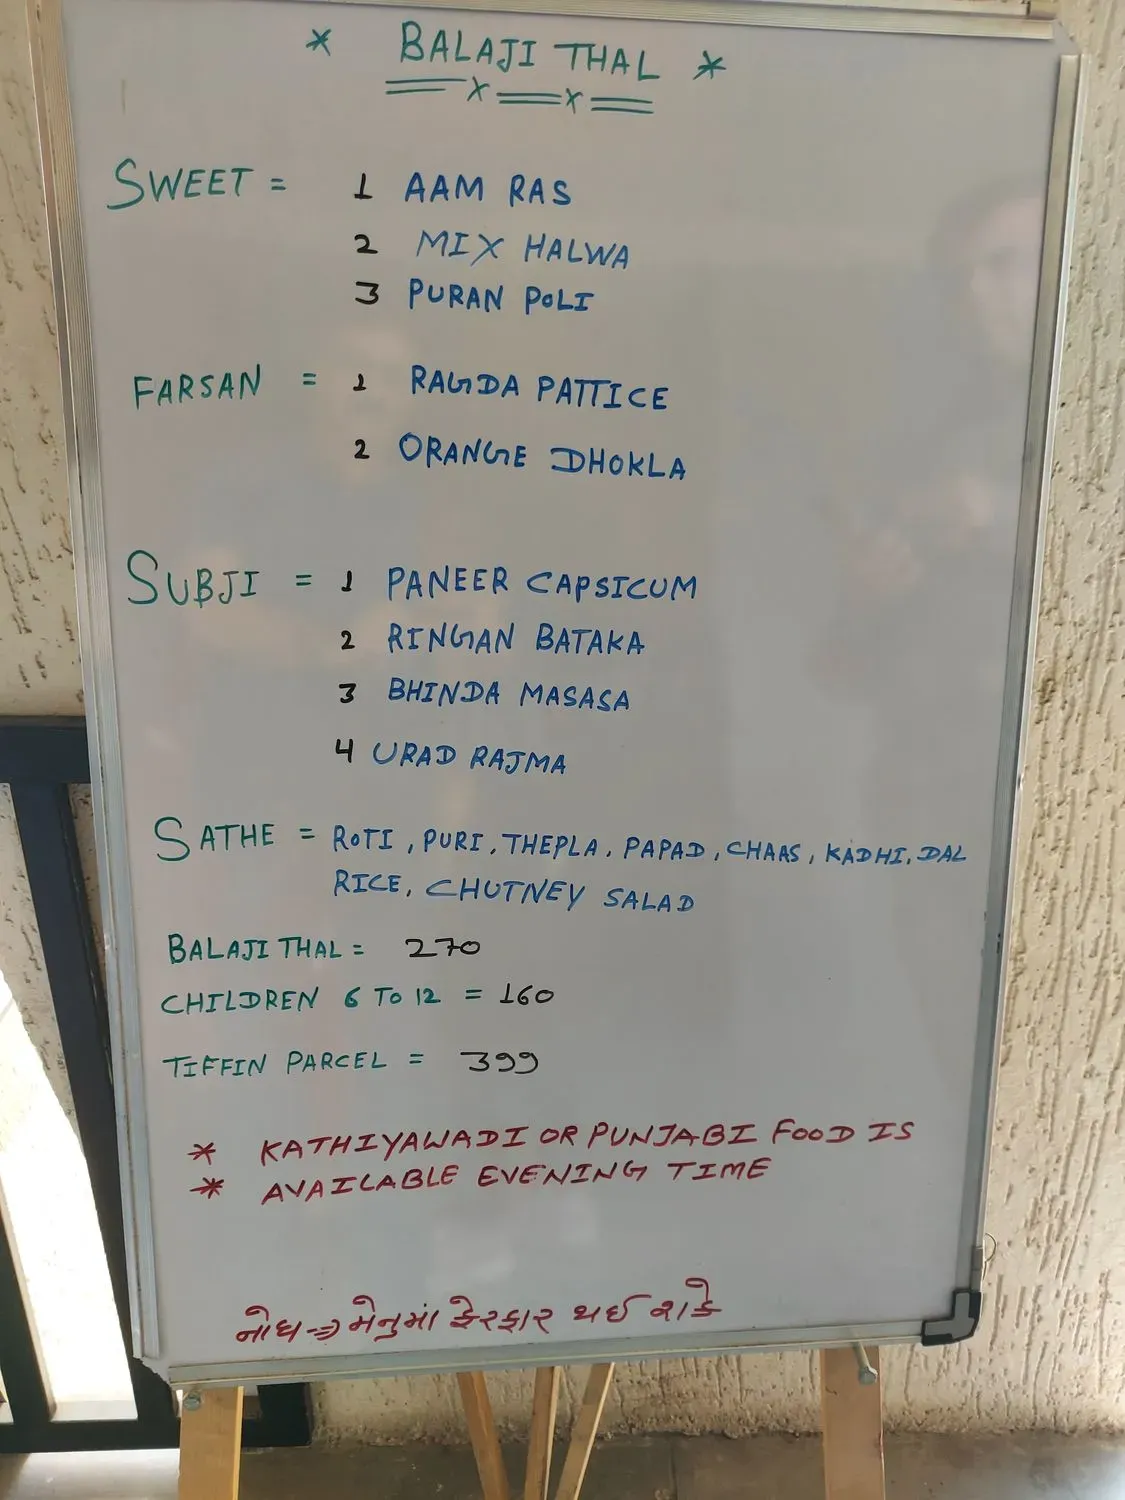 * BALAJI THAL *
SWEET = 1 AAM RAS
2 MIX HALWA
3 PURAN POLI
FARSAN = 1 RAGDA PATTICE
2 ORANGE DHOKLA
SUBJI = 1 PANEER CAPSICUM
2 RINGAN BATAKA
3 BHINDA MASASA
4 URAD RAJMA
SATHE = ROTI, PURI, THEPLA, PAPAD, CHAAS, KADHI, DAL
RICE, CHUTNEY SALAD
BALAJI THAL = 270
CHILDREN 6 TO 12 = 160
TIFFIN PARCEL = 399
* KATHIYAWADI OR PUNJABI FOOD IS
* AVAILABLE EVENING TIME
નોધ → મેનુમાં ફેરફાર થઈ શકે